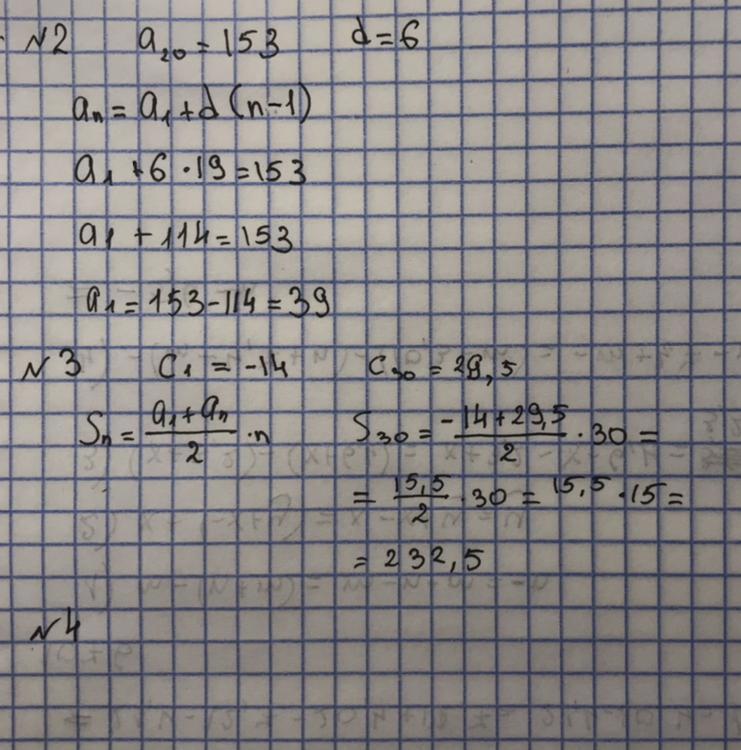 №2 a₂₀ = 153 d = 6
aₙ = a₁ + d (n-1)
a₁ + 6 · 19 = 153
a₁ + 114 = 153
a₁ = 153 - 114 = 39
№3 C₁ = -14 C₃₀ = 29,5
Sₙ = (a₁ + aₙ)/2 · n S₃₀ = (-14 + 29,5)/2 · 30 =
= 15,5/2 · 30 = 15,5 · 15 =
= 232,5
№4